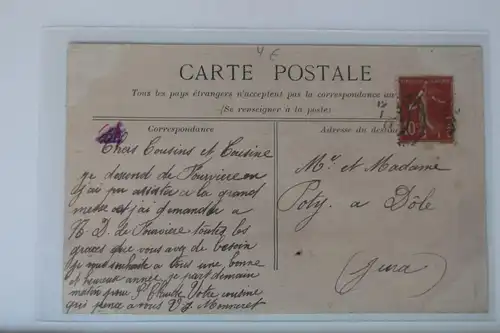 4 €
CARTE POSTALE
Tous les pays étrangers n'acceptent pas la correspondance au
(Se renseigner à la poste)
Correspondance
Adresse du dest
10
Chers Cousins et Cousine
je desend de Fourviere
j'ai pu assister a la grand
messe et j'ai demander a
N. D. de Fourviere toutes les
graces que vous avez de besoin
je vous souhaite a tous une bonne
et heureuse année je part demain
matin pour St Claude Votre cousine
qui pence a vous
Mr et Madame
Poty a Dôle
(Jura)